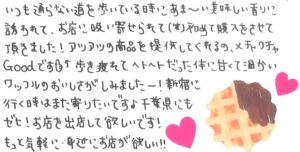 いつも通らない道を歩いている時にあま〜い美味しい香りに
誘われて、お店に吸い寄せられて(笑)初めて購入をさせて
頂きました!アツアツの商品を提供してくれるの、メチャクチャ
Goodです 歩き疲れてヘトヘトだった体に甘くて温かい
ワッフルのおいしさがしみましたー!新宿に
行く時はまた寄りたいです♪千葉県にも
ゼヒ!お店を出店して欲しいです!
もっと気軽に・身近にお店が欲しい!!